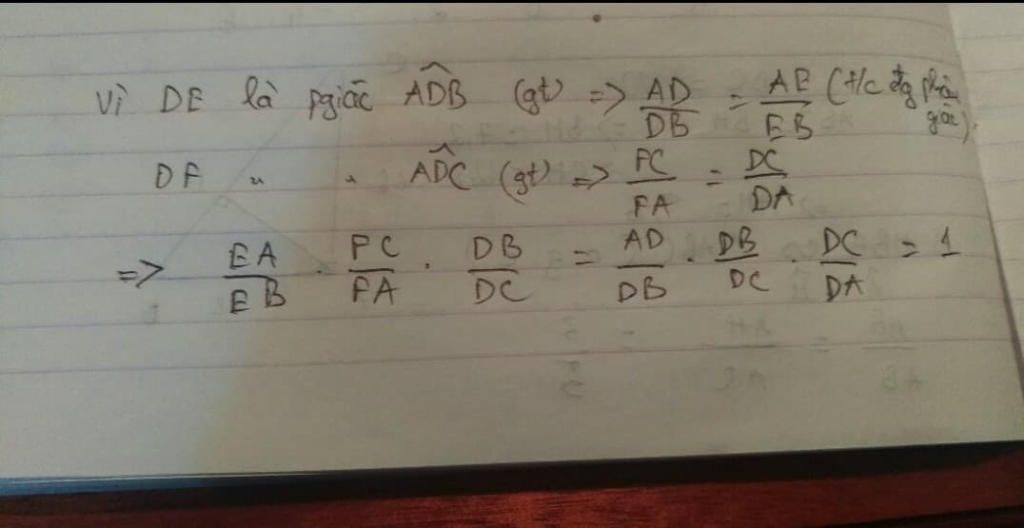 Vì DE là pgiác ADB̂ (gt) => AD/DB = AE/EB (t/c đg phân giác).
DF " " ADĈ (gt) => FC/FA = DC/DA
=> EA/EB . FC/FA . DB/DC = AD/DB . DB/DC . DC/DA = 1